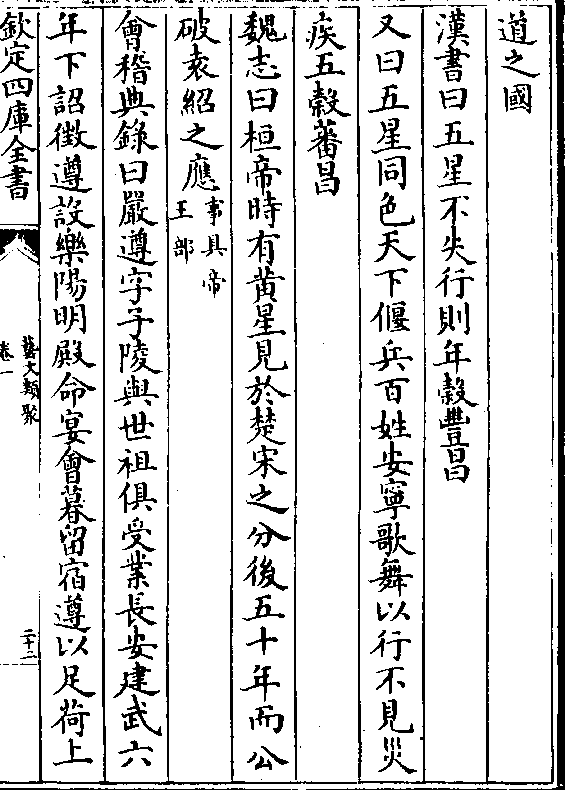 道之國
漢書曰五星不失行則年穀豐昌
又曰五星同色天下偃兵百姓安寧歌舞以行不見災
疾五穀蕃昌
魏志曰桓帝時有黄星見於楚宋之分後五十年而公
破袁紹之應事具帝
王部
會稽典錄曰嚴遵字子陵與世祖俱受業長安建武六
年下詔徵遵設樂陽明殿命宴會暮留宿遵以足荷上
欽定四庫全書
藝文類聚
卷一
二十二